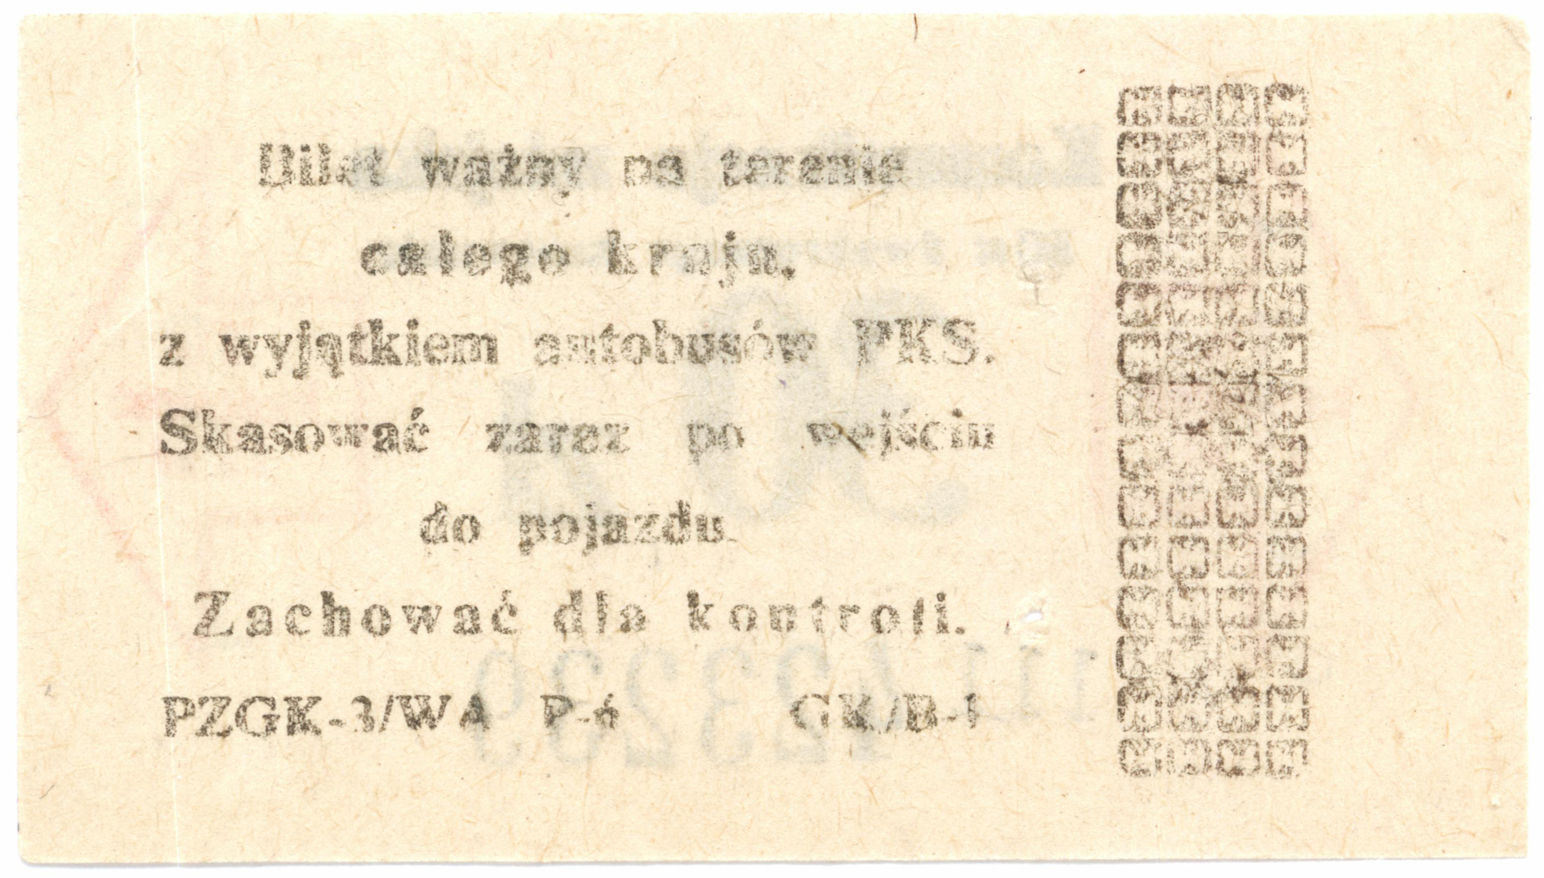 Bilet ważny na terenie
całego kraju,
z wyjątkiem autobusów PKS.
Skasować zaraz po wejściu
do pojazdu.
Zachować dla kontroli.
PZGK-3/WA P-6 GK/B-1